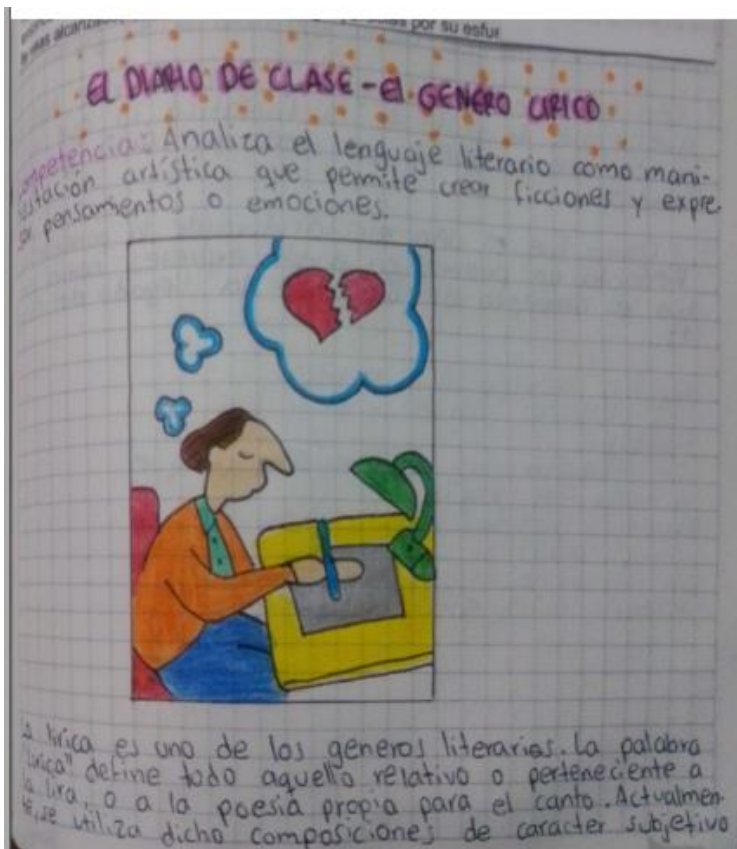 metas alcanzad
por su esfue
EL DIARIO DE CLASE - El GENERO LIRICO
ompetencia: Analiza el lenguaje literario como mani-
estación artística que permite crear ficciones y expre-
sar pensamientos o emociones.
La lirica es uno de los generos literarios. La palabra
"lirica" define todo aquello relativo o perteneciente a
la lira, o a la poesia propia para el canto. Actualmen-
te, se utiliza dicho composiciones de caracter subjetivo